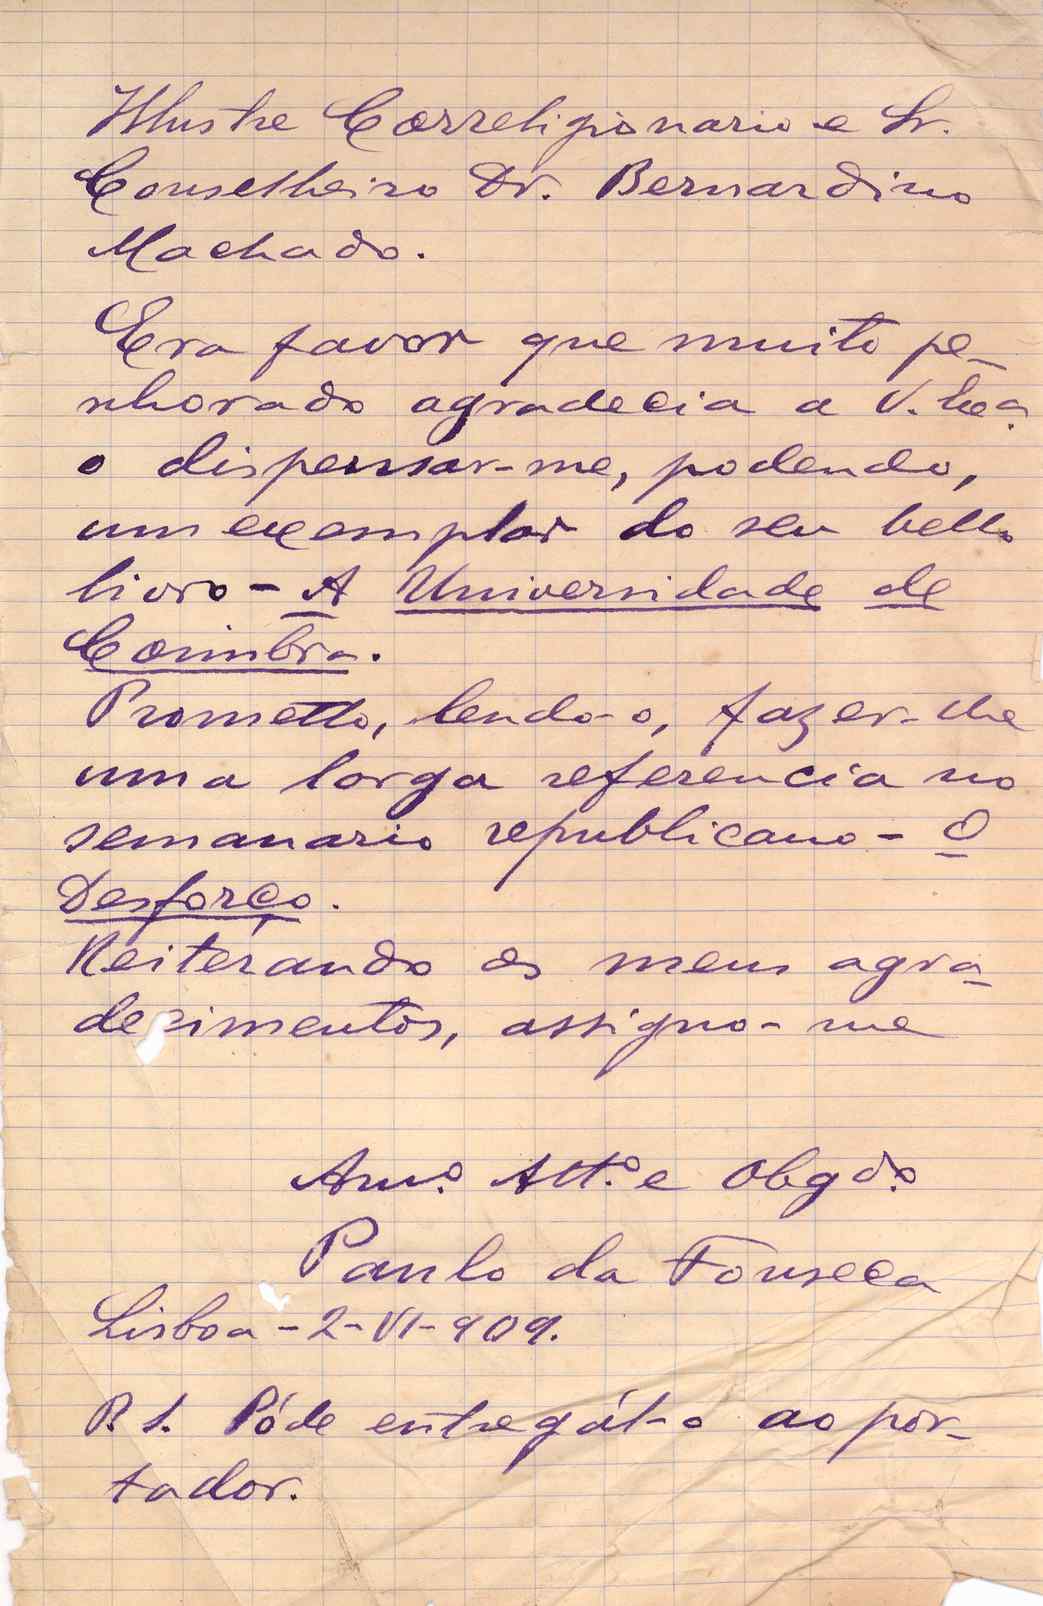 Illustre Correligionario e Sr.
Conselheiro Dr. Bernardino
Machado.
Era favor que muito pe-
nhorado agradecia a V. Exª.
o dispensar-me, podendo,
um exemplar do seu bello
livro - A Universidade de
Coimbra.
Prometto, lendo-o, fazer-lhe
uma larga referencia no
semanario republicano - O
Desforço.
Reiterando os meus agra-
decimentos, assigno-me
Amº. Attº. e Obgdº.
Paulo da Fonseca
Lisboa - 2 - VI - 909.
P. S. Póde entregál-o ao por-
tador.